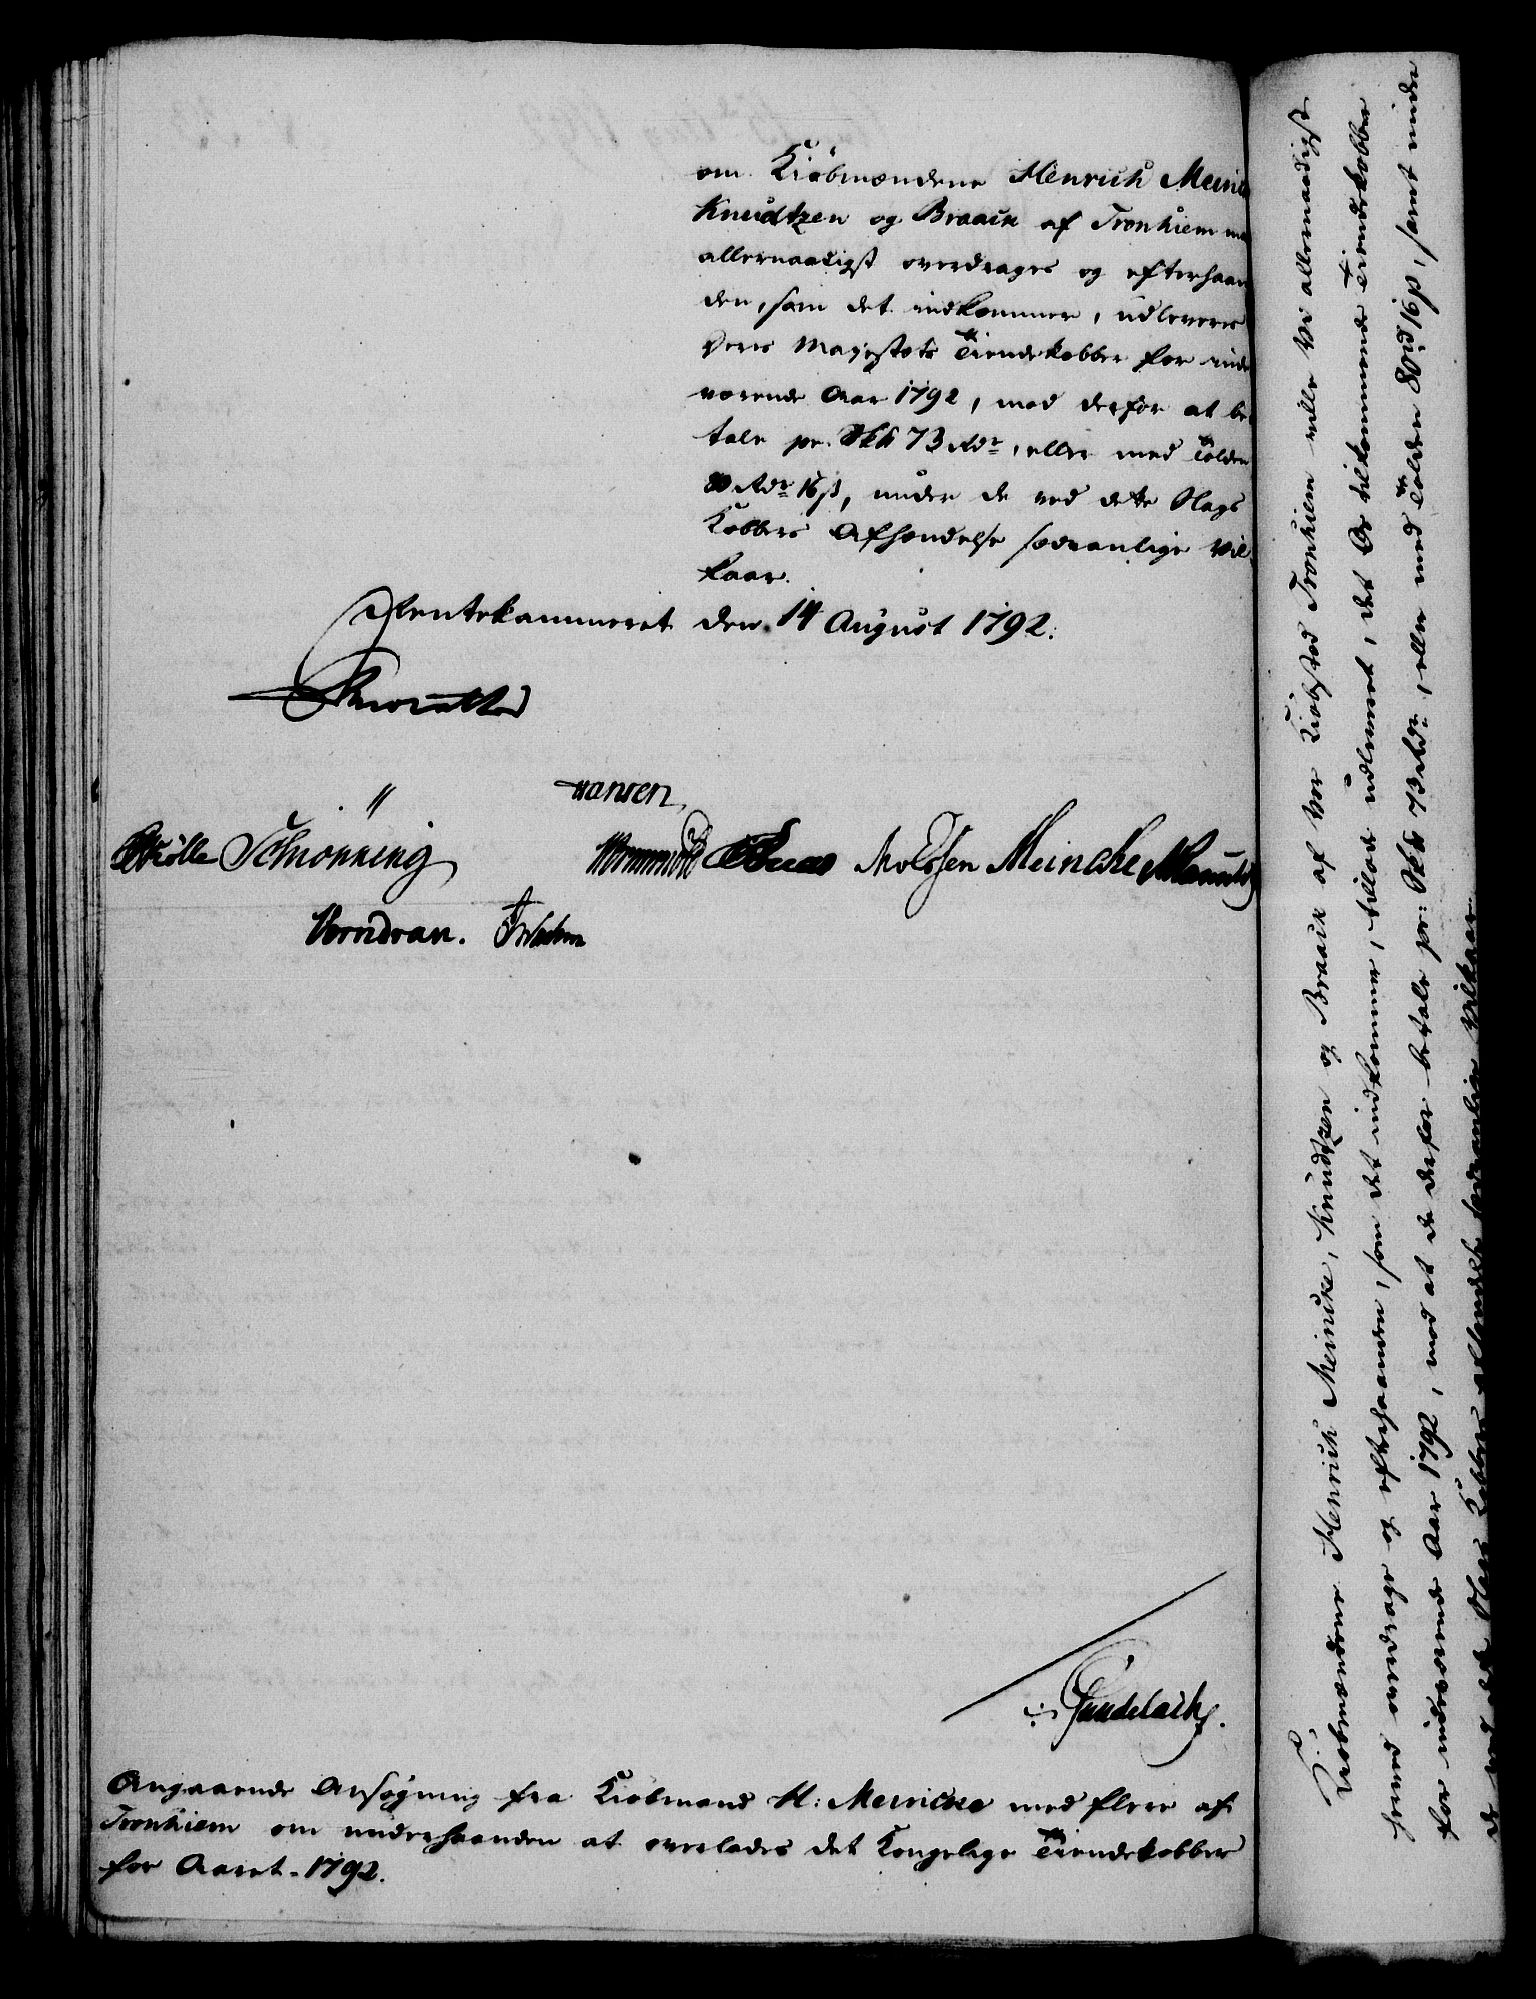 om Kiøbmændene Henrich Meinc
Knudtzen og Braack af Tronhiem maa
allernaadigst overdrages og efterhaan
den, som det indkommer, udleveres
Deres Majestæts Tiendekobber for inde
værende Aar 1792, mod derfor at be
tale pr. Sk℔ 73 Rdr, eller med Tolden
80 Rdr 16 ß, under de ved dette Slags
Kobbers Afhændelse sædvanlige Vil
kaar.
Rentekammeret den 14 August 1792.
Hansen,
Schiønning
Wormskiold Molssen Meincke
Vorndran.
Gundelach.
Angaaende Ansøgning fra Kiøbmand H: Meincke med flere af
Tronhiem om underhaanden at overlades det Kongelige Tiendekobber
for Aaret 1792.
Kiøbmændene Henrich Meincke, Knudtzen og Braack af Vor Kiøbsted Tronhiem ville Vi allernaadigst
hermed overdrage og efterhaanden, som det indkommer, tillade udleveret, det Os tilkommende Tiendekobber
for indeværende Aar 1792, mod at de derfor betale pr: Sk℔ 73 Rdr, eller med Tolden 80 rd 16 ß, samt under
de ved dette Slags Kobbers Afhændelse sædvanlige Vilkaar.